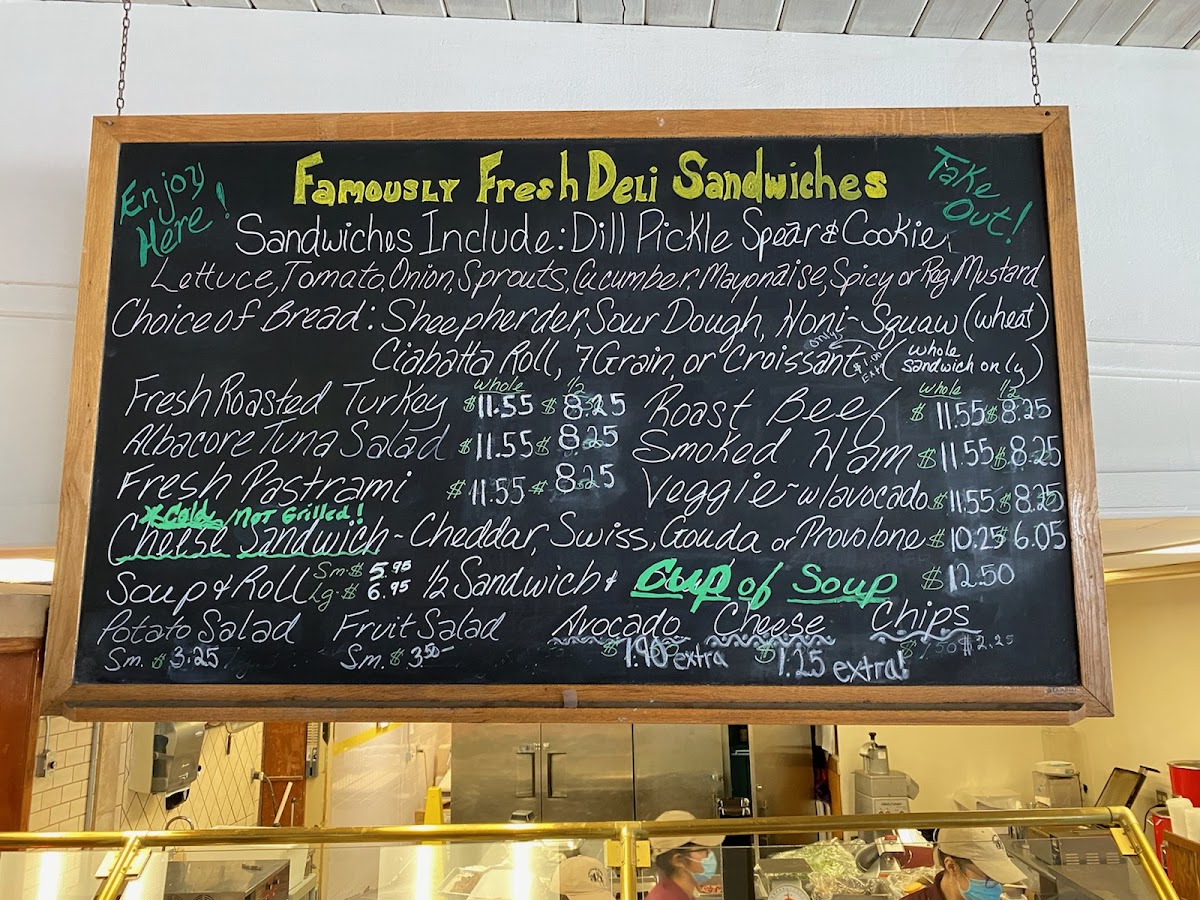 Enjoy Here!
Famously Fresh Deli Sandwiches
Take Out!
Sandwiches Include: Dill Pickle Spear & Cookie,
Lettuce, Tomato, Onion, Sprouts, Cucumber, Mayonaise, Spicy or Reg. Mustard
Choice of Bread: Sheepherder, Sour Dough, Honi-Squaw (wheat)
Ciabatta Roll, 7 Grain, or Croissant (whole sandwich only)
only
Extra
whole 1/2
Fresh Roasted Turkey $11.55 $8.25
Albacore Tuna Salad $11.55 $8.25
Fresh Pastrami $11.55 $8.25
whole 1/2
Roast Beef $11.55 $8.25
Smoked Ham $11.55 $8.25
Veggie ~ w/avocado $11.55 $8.25
*Cold / Not Grilled!
Cheese Sandwich ~ Cheddar, Swiss, Gouda or Provolone $10.25 $6.05
Soup & Roll Sm. $5.95 Lg. $6.95
1/2 Sandwich & Cup of Soup $12.50
Potato Salad
Sm. $3.25
Fruit Salad
Sm. $3.50
Avocado
$1.90 extra
Cheese
$1.25 extra!
Chips
$2.25